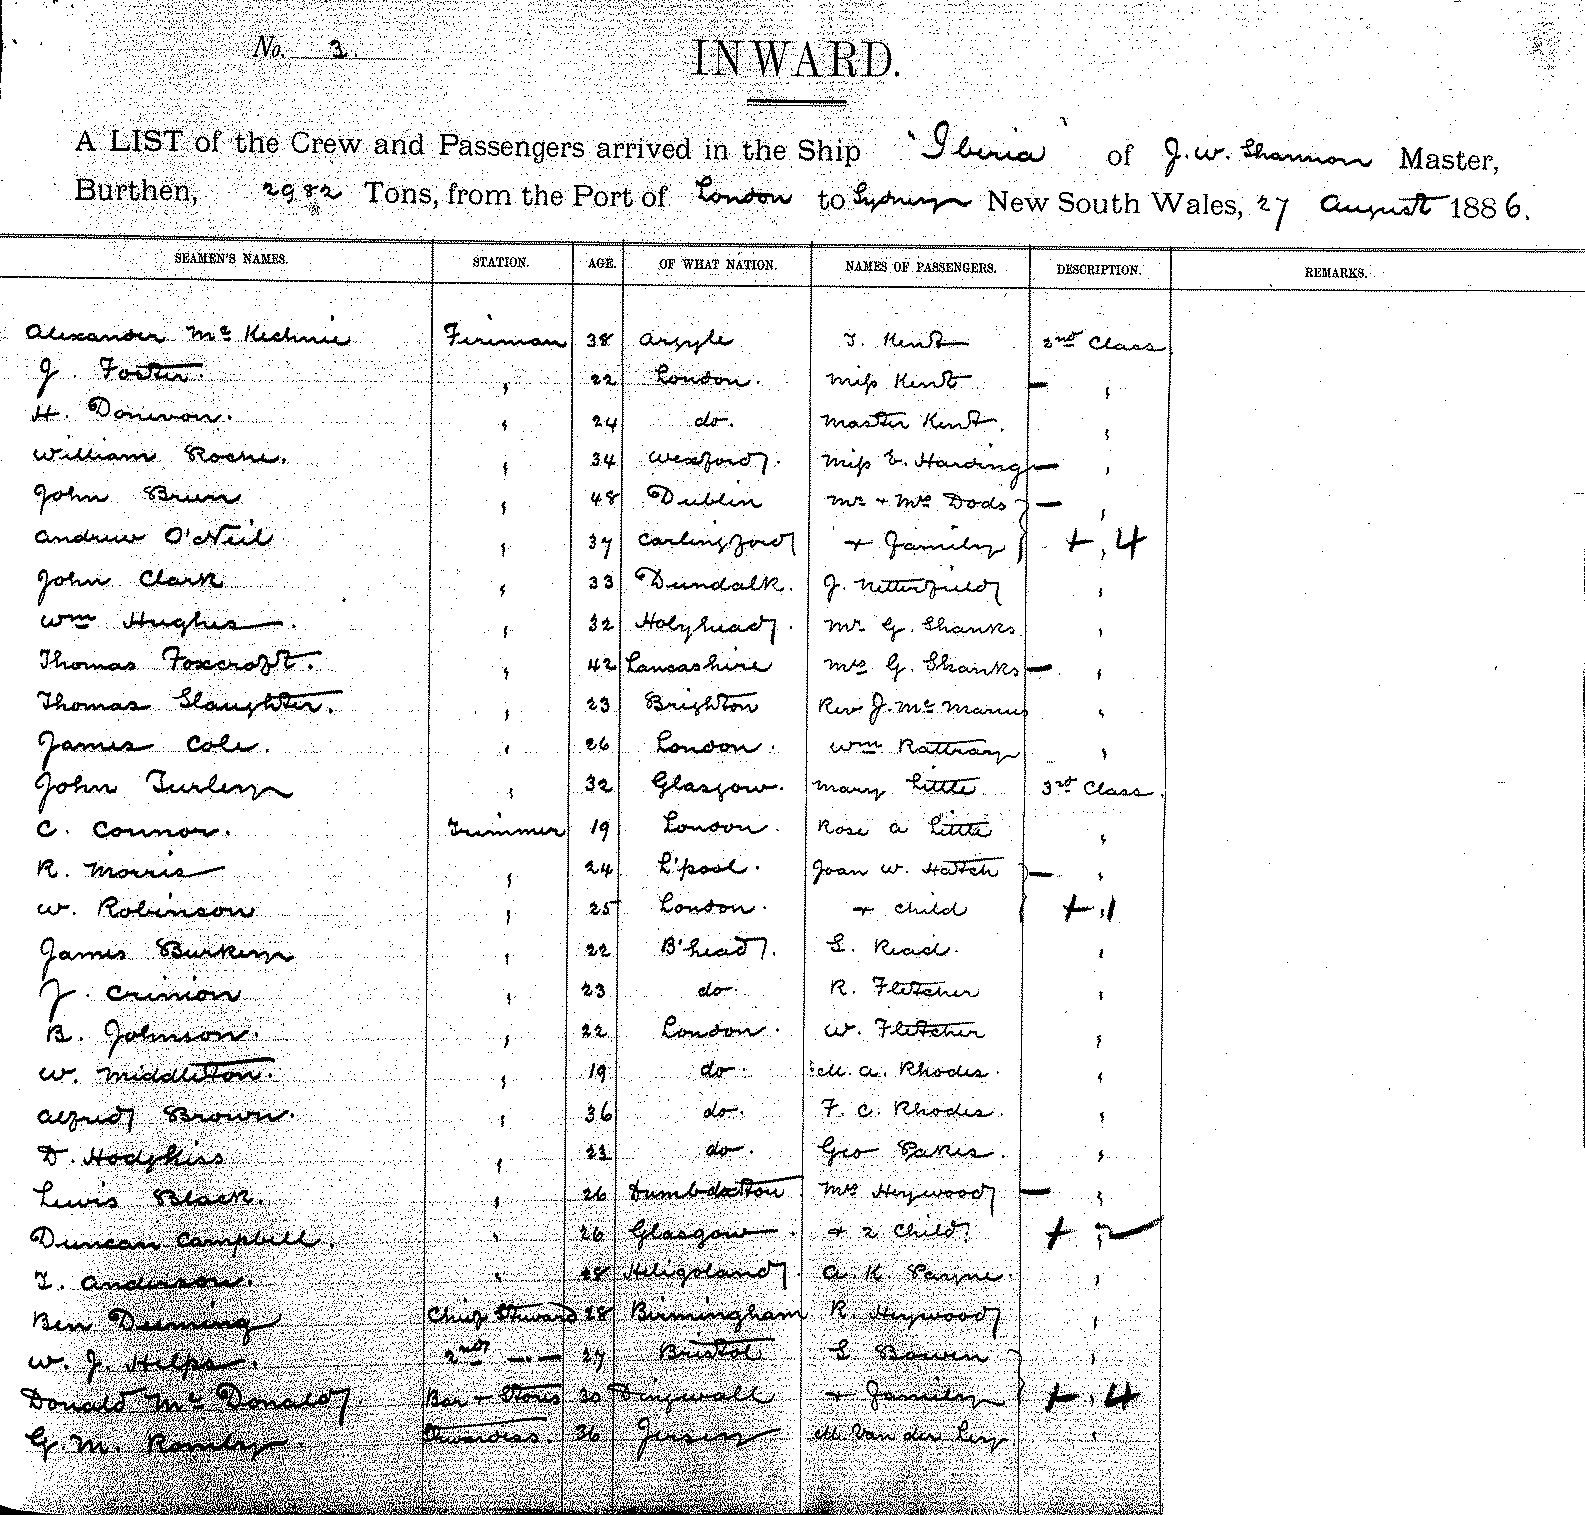 No. 3.
INWARD.
A LIST of the Crew and Passengers arrived in the Ship "Iberia" of J. W. Shannon Master,
Burthen, 2982 Tons, from the Port of London to Sydney New South Wales, 27 August 1886.
SEAMEN'S NAMES. STATION. AGE. OF WHAT NATION. NAMES OF PASSENGERS. DESCRIPTION. REMARKS.
Alexander Mc Kechnie Fireman 38 Argyle T. Kent 2nd Class
J. Foster " 22 London. Miss Kent — "
H. Donivon. " 24 do. Master Kent. "
William Roche. " 34 Wexford. Miss E. Harding — "
John Brien " 48 Dublin Mr + Mrs Dods } — "
Andrew O'Neil " 37 Carlingford + Family } + " 4
John Clark " 33 Dundalk. J. Netterfield "
Wm Hughes. " 32 Holyhead. Mr G. Shanks "
Thomas Foxcroft. " 42 Lancashire Mrs G. Shanks — "
Thomas Slaughter. " 23 Brighton Rev J. Mc Manus "
James Cole. " 26 London. Wm Rattray "
John Turley " 32 Glasgow. Mary Little 3rd Class.
C. Connor. Trimmer 19 London. Rose A Little "
R. Morris " 24 L'pool. Joan W. Hatch } — "
W. Robinson " 25 London. + Child { + " 1
James Burkey " 22 B'head. S. Read. "
J. Crinion " 23 do. R. Fletcher "
B. Johnson. " 22 London. W. Fletcher "
W. Middleton. " 19 do. M. A. Rhodes. "
Alfred Brown. " 36 do. F. C. Rhodes. "
D. Hodgkiss " 23 do. Geo Pakes. "
Lewis Black. " 26 Dumbarton Mrs Heywood — "
Duncan Campbell. " 26 Glasgow. + 2 Child + " 2
T. Anderson. " 28 Heligoland. A. K. Payne. "
Ben Deeming Chief Steward 28 Birmingham R. Heywood "
W. J. Helps. 2nd — " — 27 Bristol S Bowen } "
Donald Mc Donald. Bar + Stores 30 Dingwall + Family } + " 4
G. M. Romby Stewardess. 36 Jersey M. Van der Ley. "